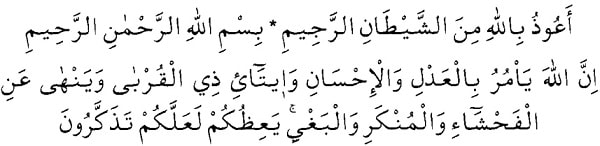 أَعُوذُ بِاللهِ مِنَ الشَّيْطَانِ الرَّجِيمِ * بِسْمِ اللهِ الرَّحْمٰنِ الرَّحِيمِ
اِنَّ اللهَ يَاْمُرُ بِالْعَدْلِ وَالْاِحْسَانِ وَاِيتَٓائِ ذِي الْقُرْبٰى وَيَنْهٰى عَنِ
الْفَحْشَٓاءِ وَالْمُنْكَرِ وَالْبَغْيِۚ يَعِظُكُمْ لَعَلَّكُمْ تَذَكَّرُونَ